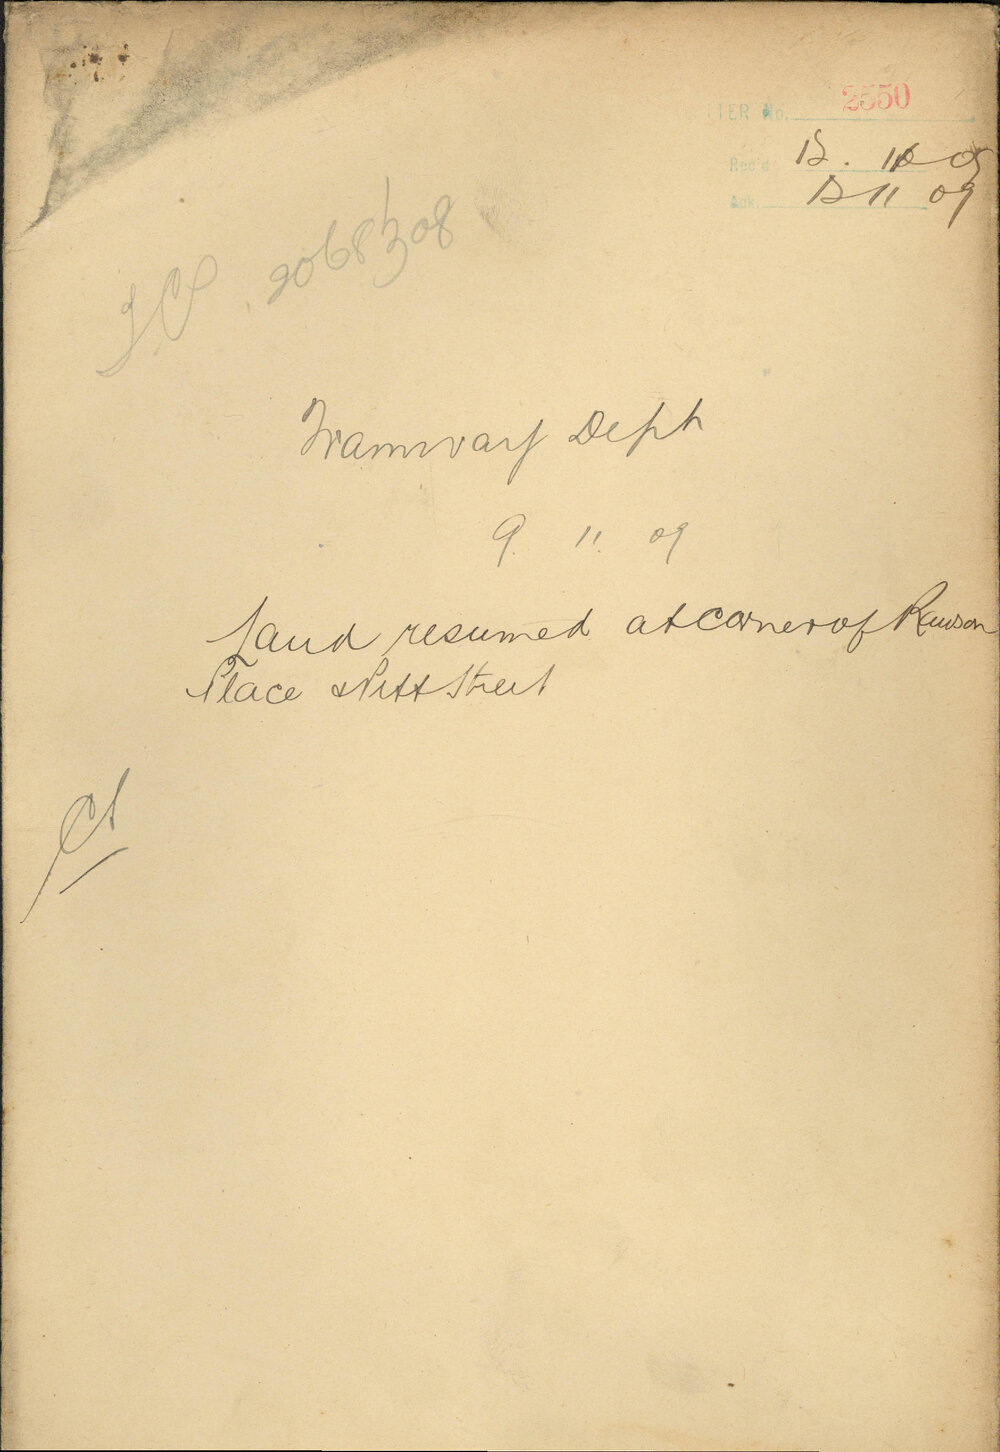 TTER No. 2550
Rec'd 12. 11 09
Ack. 12 11 09
2068/3/08
Tramway Dept
9. 11. 09
Land resumed at corner of Rawson
Place & Pitt Street